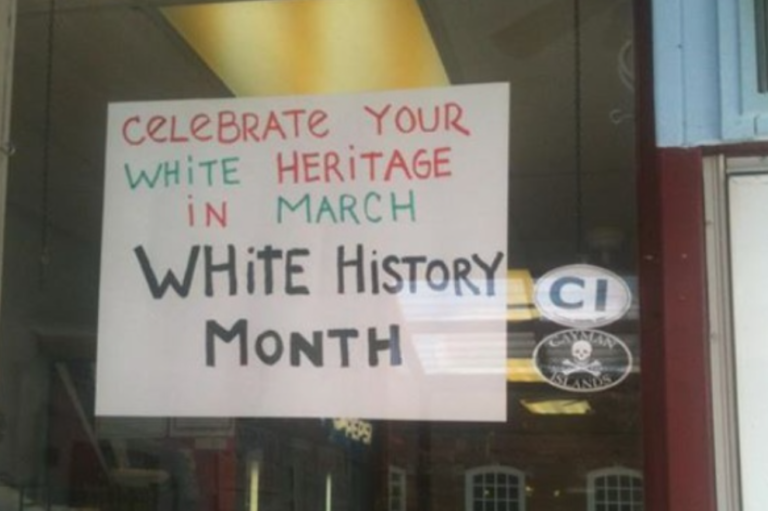 CELEBRATE YOUR
WHITE HERITAGE
IN MARCH
WHITE HISTORY
MONTH
CI
CAYMAN
ISLANDS